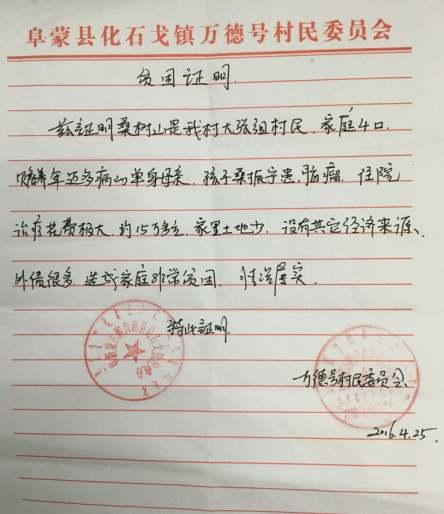 阜蒙县化石戈镇万德号村民委员会
贫困证明
兹证明桑树山是我村大张组村民.家庭4口.
赡养年迈多病的单身母亲.孩子桑振宇患脑瘤.住院
治疗花费极大.约15万左右.家里土地少.没有其它经济来源、
外债很多.造成家庭非常贫困.情况属实.
特此证明
万德号村民委员会
2016.4.25.